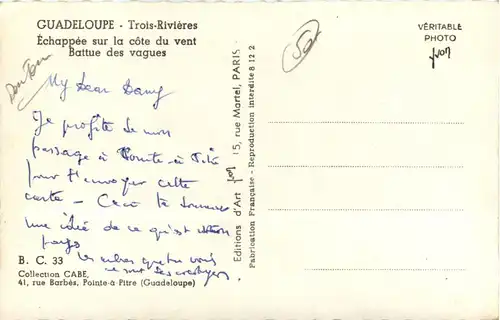 GUADELOUPE - Trois-Rivières
Échappée sur la côte du vent
Battue des vagues
My Dear Dany
Je profite de mon
passage à Pointe-à-Pitre
pour t'envoyer cette
carte - Ceci te donnera
une idée de ce qu'est
pays
les arbres que tu vois
ce sont des cocotiers.
B. C. 33
Collection CABE,
41, rue Barbès, Pointe-à-Pitre (Guadeloupe)
Editions d'Art Yvon 15, rue Martel, PARIS
Fabrication Française - Reproduction interdite 8 12 2
VÉRITABLE
PHOTO
Yvon